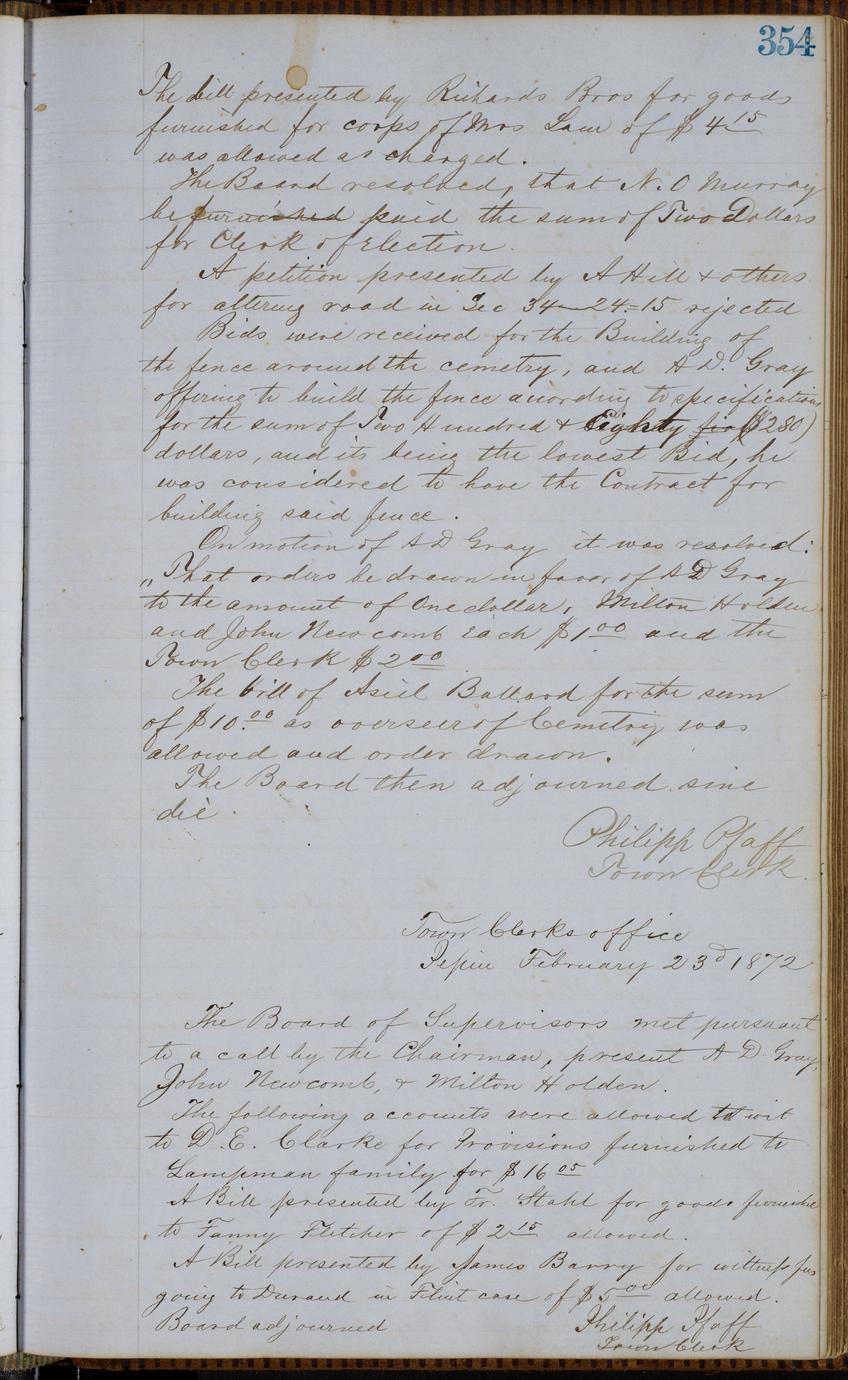 354
The bill presented by Richards Bros for goods
furnished for corps of Mrs Law of $4.15
was allowed as charged.
The Board resolved, that N. O Murray
be furnished paid the sum of Two Dollars
for Clerk of Election.
A petition presented by A Hill & others
for altering road in Sec 34-24-15 rejected
Bids were received for the Building of
the fence around the cemetry, and A. D. Gray
offering to build the fence acording to specifications
for the sum of Two Hundred & Eighty ($280)
dollars, and its being the lowest Bid, he
was considered to have the Contract for
building said fence.
On motion of A D Gray it was resolved:
„That orders be drawn in favor of A D Gray
to the amount of One dollar, Milton Holden
and John Newcomb each $1 00 and the
Town Clerk $2 00
The bill of Asiel Ballard for the sum
of $10.00 as overseer of Cemetry was
allowed and order drawn.
The Board then adjourned sine
die.
Philipp Pfaff
Town Clerk.
Town Clerks office
Pepin February 23d 1872
The Board of Supervisors met pursuant
to a call by the Chairman, present A. D. Gray,
John Newcomb, & Milton Holden.
The following accounts were allowed to wit
to D. E. Clarke for Provisions furnished to
Lampman family for $16 05
A Bill presented by Fr. Stahl for goods furnished
to Fanny Fletcher of $2 15 allowed.
A Bill presented by James Barry for witness fees
going to Durand in Flint case of $5 00 allowed.
Board adjourned
Philipp Pfaff
Town Clerk